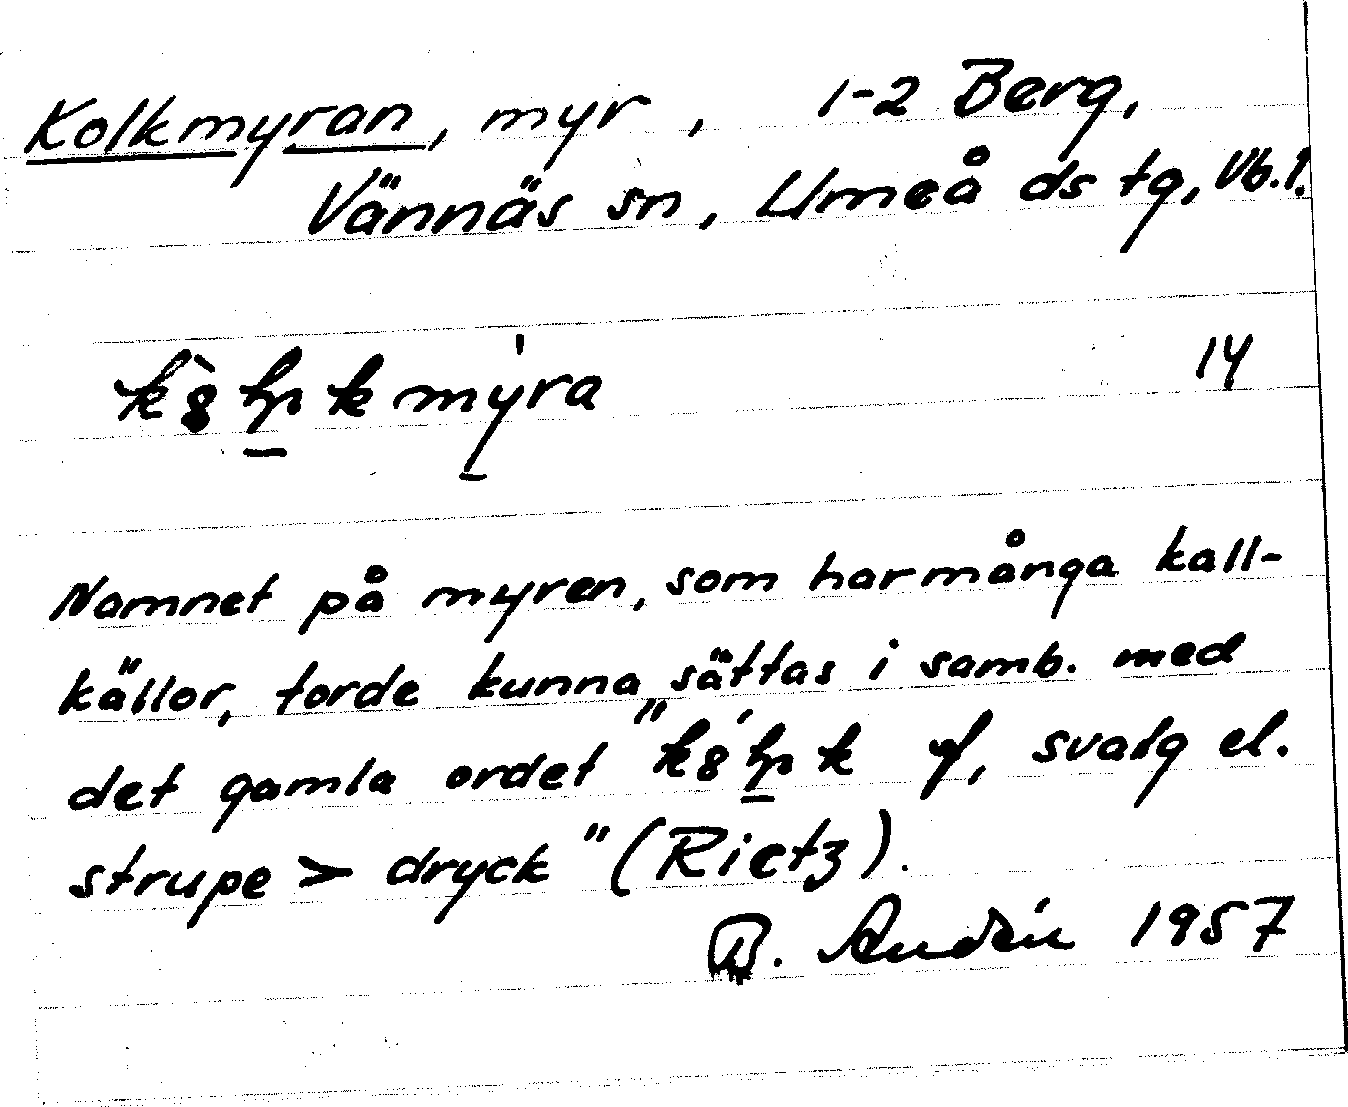 Kolkmyran, myr, 1-2 Berg,
Vännäs sn, Umeå ds tg, Vb. l.
14
Namnet på myren, som har många kall-
källor, torde kunna sättas i samb. med
det gamla ordet " f, svalg el.
strupe > dryck " (Rietz).
B. Audén 1957